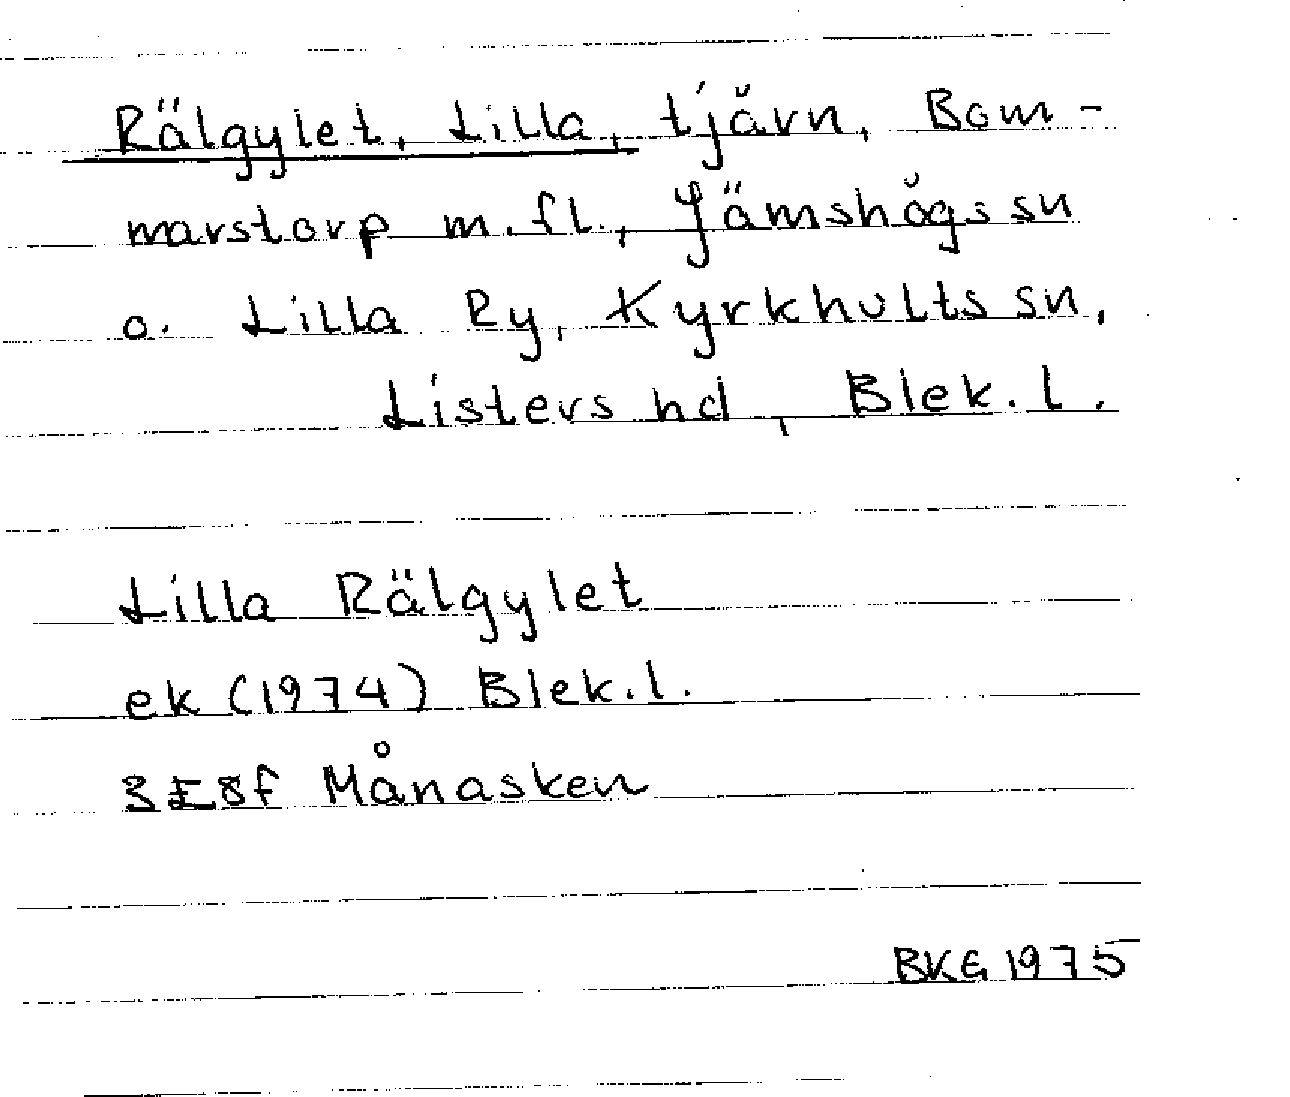 Rälgylet, Lilla, tjärn, Bom-
marstorp m.fl., Jämshögs sn
o. Lilla Ry, Kyrkhults sn,
Listers hd, Blek.l.
Lilla Rälgylet
ek (1974) Blek.l.
3E8f Månasken
BKG 1975